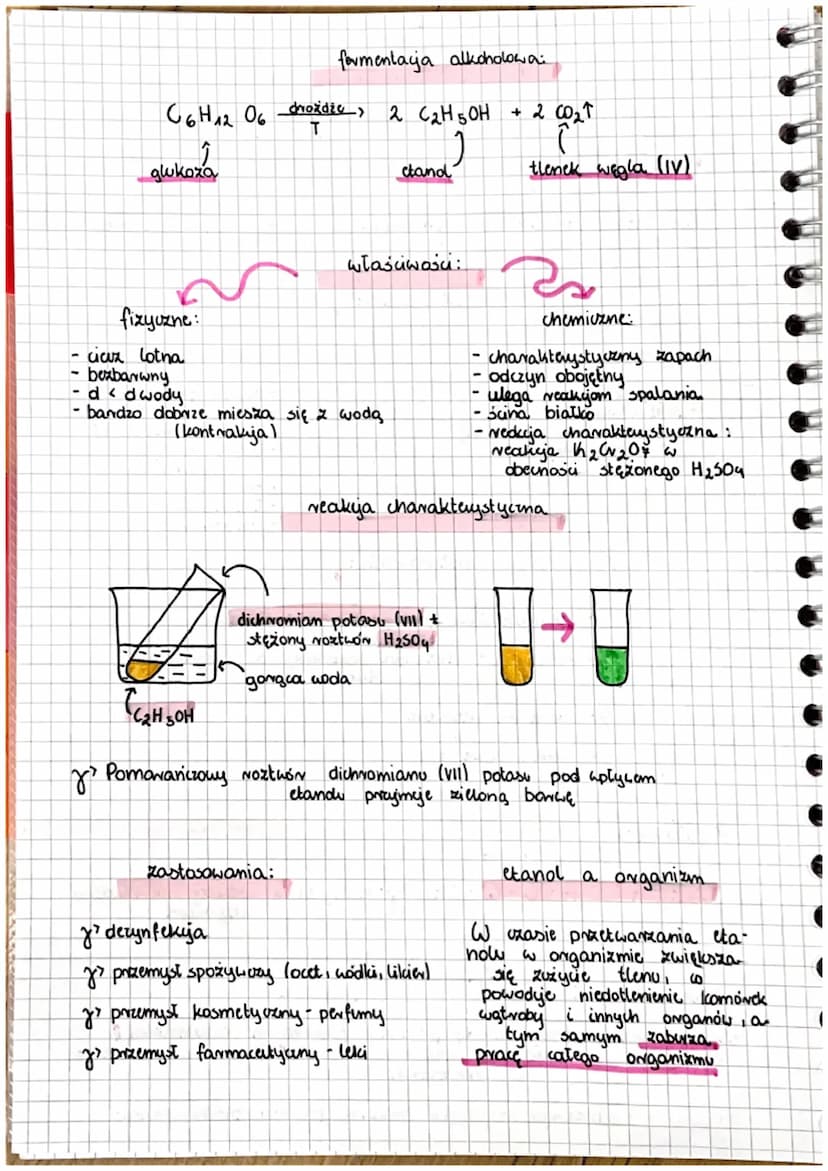 fermentacja alkoholowa:
C6H12O6 drożdże → 2 C2H5OH + 2 CO2↑
T
glukoza
etanol
tlenek węgla (IV)
właściwości:
fizyczne:
- ciecz lotna
- bezbarwny
- d < d wody
- bardzo dobrze miesza się z wodą
(kontrakcja)
chemiczne:
- charakterystyczny zapach
- odczyn obojętny
- ulega reakcjom spalania
- ścina białko
- reakcja charakterystyczna:
reakcja K2Cr2O7 w
obecności stężonego H2SO4
reakcja charakterystyczna
dichromian potasu (VII) +
stężony roztwór H2SO4
gorąca woda
C2H5OH
Pomarańczowy roztwór dichromianu (VII) potasu pod wpływem
etanolu przyjmuje zieloną barwę
zastosowania:
dezynfekcja
przemysł spożywczy (ocet, wódki, likier)
przemysł kosmetyczny - perfumy
przemysł farmaceutyczny - leki
etanol a organizm
W czasie przetwarzania eta-
nolu w organizmie zwiększa
się zużycie tlenu, co
powoduje niedotlenienie komórek
wątroby i innych organów, a
tym samym zaburza
pracę całego organizmu